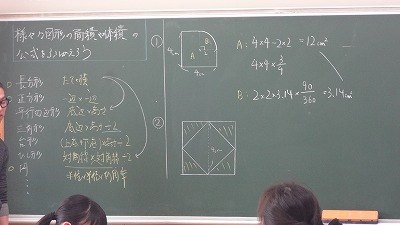 様々な図形の面積や体積の
公式をふりかえろう
長方形 たて×横
正方形 一辺×一辺
平行四辺形 底辺×高さ
三角形 底辺×高さ÷2
台形 (上底+下底)×高さ÷2
ひし形 対角線×対角線÷2
円 半径×半径×円周率
①
4cm
A
B
2
4cm
A: 4×4-2×2=12cm²
4×4×3/4
B: 2×2×3.14×90/360=3.14cm²
②
4cm